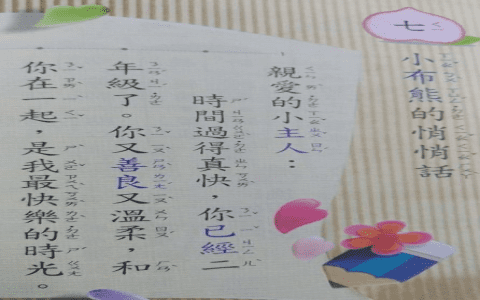 七
小布熊的悄悄話
親愛的小主人：
時間過得真快，你已經二
年級了。你又善良又溫柔，和
你在一起，是我最快樂的時光。